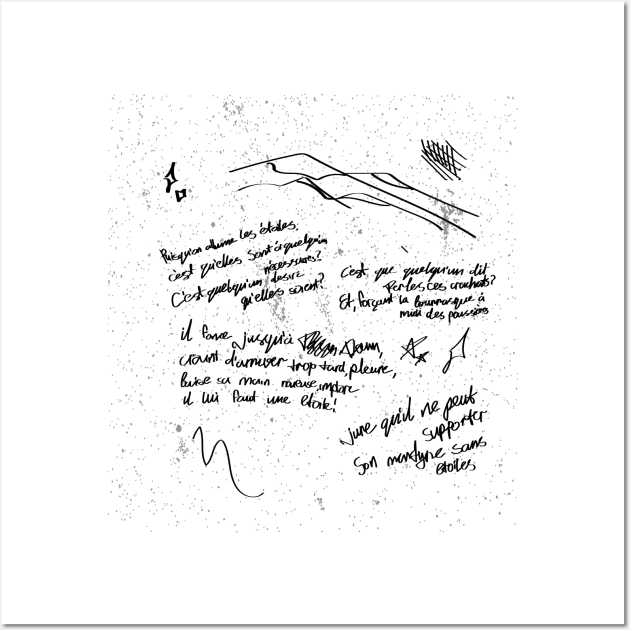 Puisqu'on allume les étoiles,
c'est qu'elles sont à quelqu'un
nécessaires?
C'est quelqu'un desire
qu'elles soient?
c'est que quelqu'un dit
Perles ces crachats?
Et, forçant la bourrasque à
midi des poussières
il fonce jusqu'à
craint d'arriver trop tard, pleure,
baise sa main noueuse, implore
il lui faut une étoile!
jure qu'il ne peut
supporter
son martyre sans
étoiles